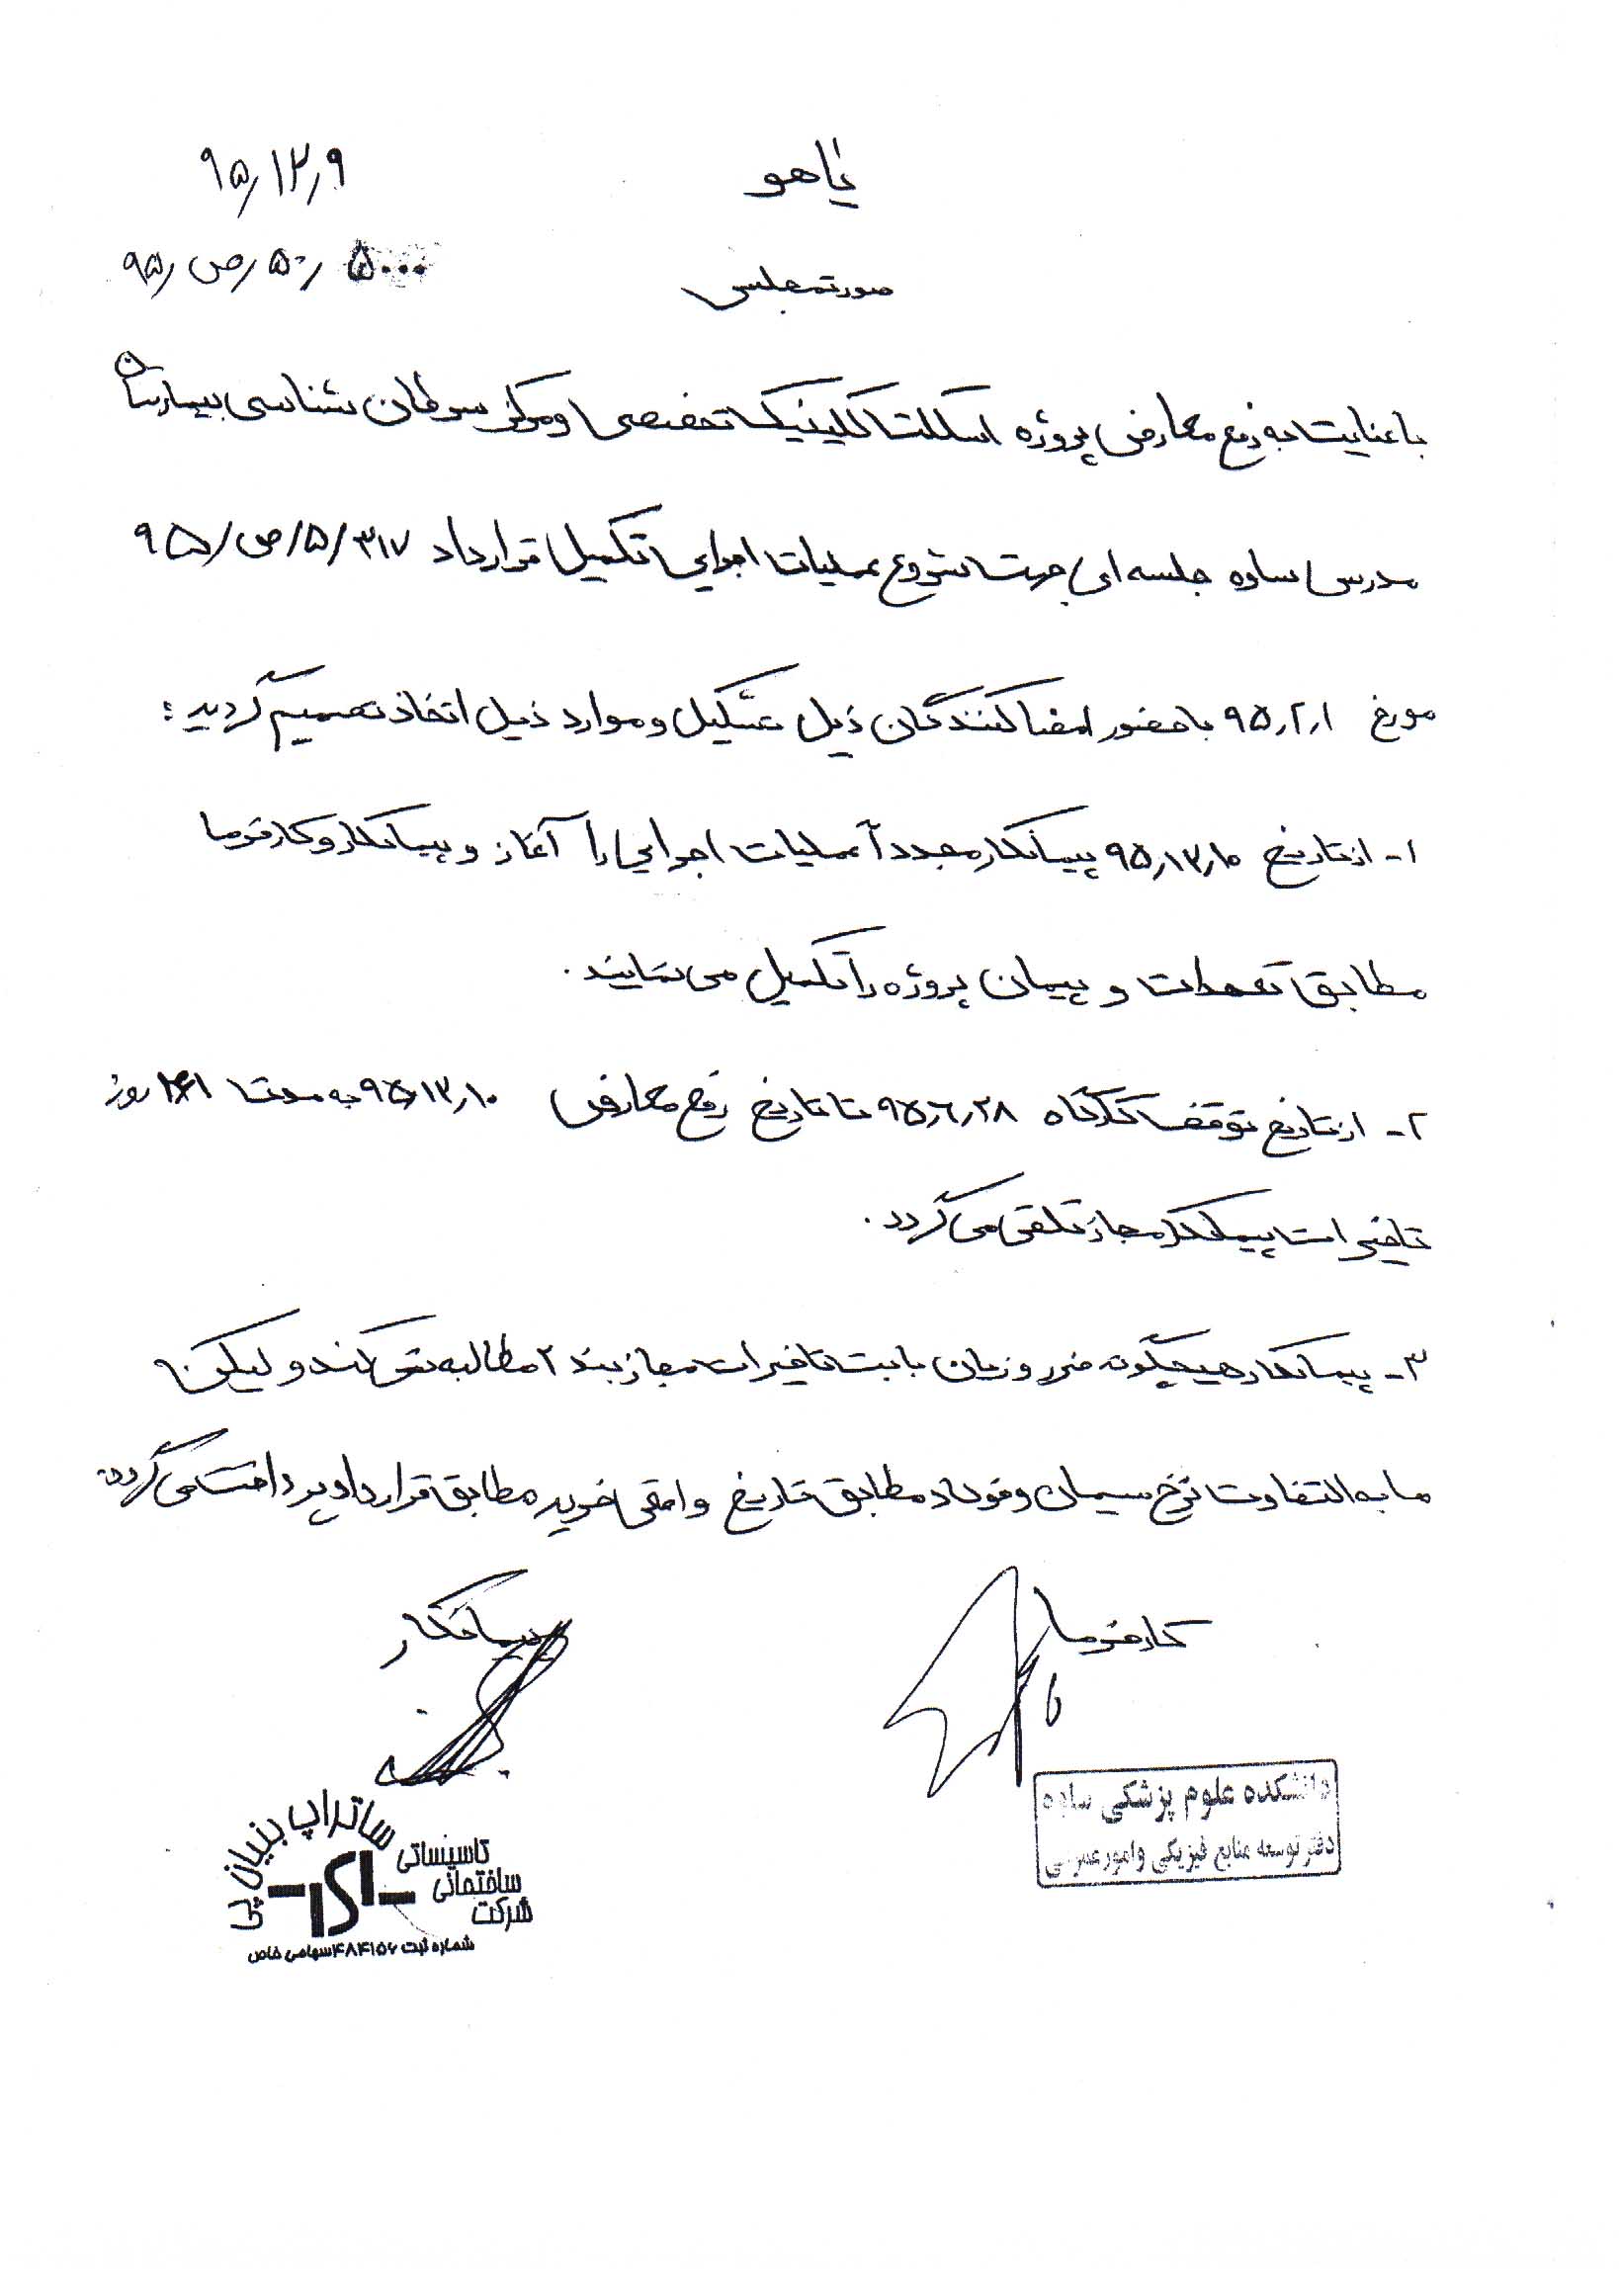 یاهو
۹۵٫۱۲٫۹
صورتمجلس
۹۵٫ص٫۵۰٫۵۰۰۰
با عنایت به رفع معارض پروژه اسکلت کلینیک تخصصی و مرکز سرطان شناسی بیمارستان
مدرس ساوه جلسه ای جهت شروع عملیات اجرایی تکمیل قرارداد ۹۵/ص/۵/۳۱۷
مورخ ۹۵٫۲٫۱ با حضور امضا کنندگان ذیل تشکیل و موارد ذیل اتخاذ تصمیم گردید :
۱- از تاریخ ۹۵٫۱۲٫۱۰ پیمانکار مجدداً عملیات اجرایی را آغاز و پیمانکار و کارفرما
مطابق تعهدات و پیمان پروژه را تکمیل می نمایند .
۲- از تاریخ توقف کارگاه ۹۵٫۶٫۲۸ تا تاریخ رفع معارض ۹۵٫۱۲٫۱۰ به مدت روز
تاخیرات پیمانکار مجاز تلقی می گردد .
۳- پیمانکار هیچگونه ضرر و زیان بابت تاخیرات مجاز بند ۲ مطالبه نمی کند و لیکن
مابه التفاوت نرخ سیمان و فولاد مطابق تاریخ واقعی خرید مطابق قرارداد پرداخت می گردد.
کارفرما
پیمانکار
دانشکده علوم پزشکی ساوه
دفتر توسعه منابع فیزیکی و امور عمرانی
ساتراپ بنیان پی
تاسیساتی
ساختمانی
شرکت
شماره ثبت ۴۸۴۱۵۶ سهامی خاص